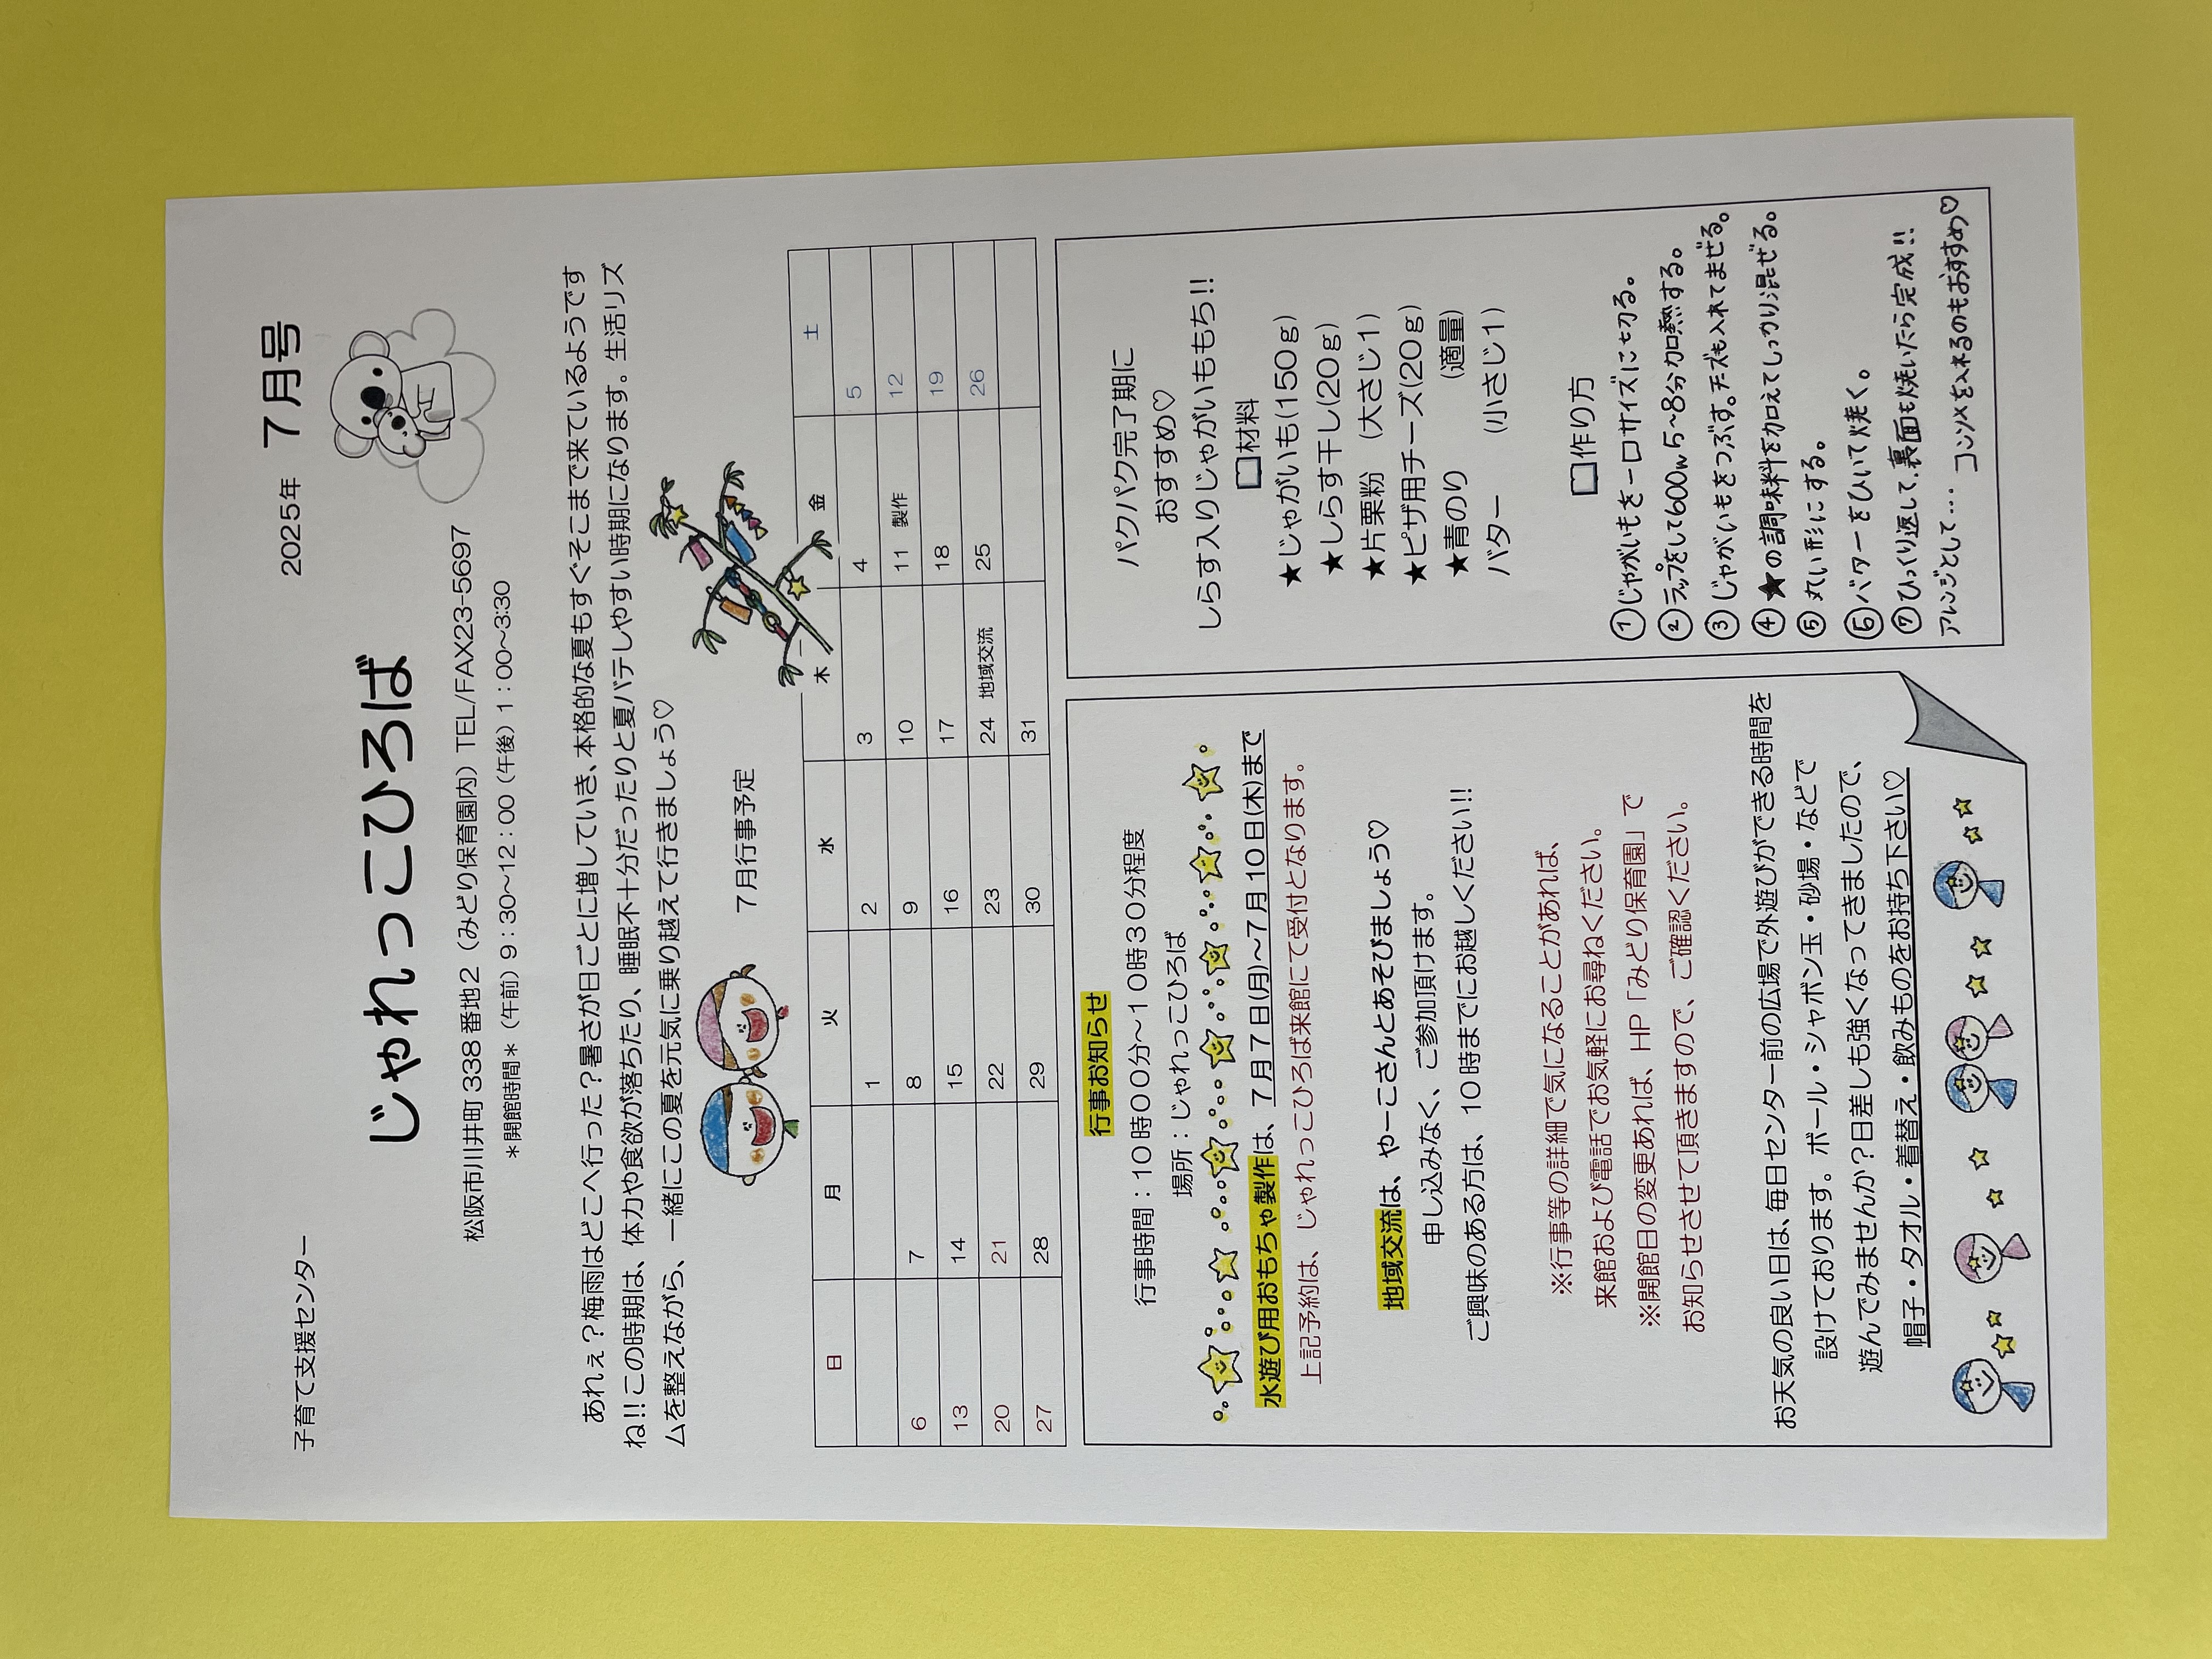 子育て支援センター
2025年　7月号
じゃれっこひろば
松阪市川井町338番地2（みどり保育園内）TEL/FAX23-5697
＊開館時間＊（午前）9：30～12：00（午後）1：00～3:30
あれぇ？梅雨はどこへ行った？暑さが日ごとに増していき、本格的な夏もすぐそこまで来ているようです
ね!!この時期は、体力や食欲が落ちたり、睡眠不十分だったりと夏バテしやすい時期になります。生活リズ
ムを整えながら、一緒にこの夏を元気に乗り越えて行きましょう♡
7月行事予定
日 月 火 水 木 金 土
1 2 3 4 5
6 7 8 9 10 11 製作 12
13 14 15 16 17 18 19
20 21 22 23 24 地域交流 25 26
27 28 29 30 31
行事お知らせ
行事時間：10時00分～10時30分程度
場所：じゃれっこひろば
水遊び用おもちゃ製作は、7月7日(月)～7月10日(木)まで
上記予約は、じゃれっこひろば来館にて受付となります。
地域交流は、やーこさんとあそびましょう♡
申し込みなく、ご参加頂けます。
ご興味のある方は、10時までにお越しください!!
※行事等の詳細で気になることがあれば、
来館および電話でお気軽にお尋ねください。
※開館日の変更あれば、HP「みどり保育園」で
お知らせさせて頂きますので、ご確認ください。
お天気の良い日は、毎日センター前の広場で外遊びができる時間を
設けております。ボール・シャボン玉・砂場・などで
遊んでみませんか？日差しも強くなってきましたので、
帽子・タオル・着替え・飲みものをお持ち下さい♡
パクパク完了期に
おすすめ♡
しらす入りじゃがいももち!!
□材料
★じゃがいも(150g)
★しらす干し(20g)
★片栗粉　(大さじ1)
★ピザ用チーズ(20g)
★青のり　(適量)
バター　(小さじ1)
□作り方
①じゃがいもを一口サイズに切る。
②ラップをして600w5～8分加熱する。
③じゃがいもをつぶす。チーズも入れてまぜる。
④★の調味料を加えてしっかり混ぜる。
⑤丸い形にする。
⑥バターをひいて焼く。
⑦ひっくり返して、裏面も焼いたら完成!!
アレンジとして…
コンソメを入れるのもおすすめ♡